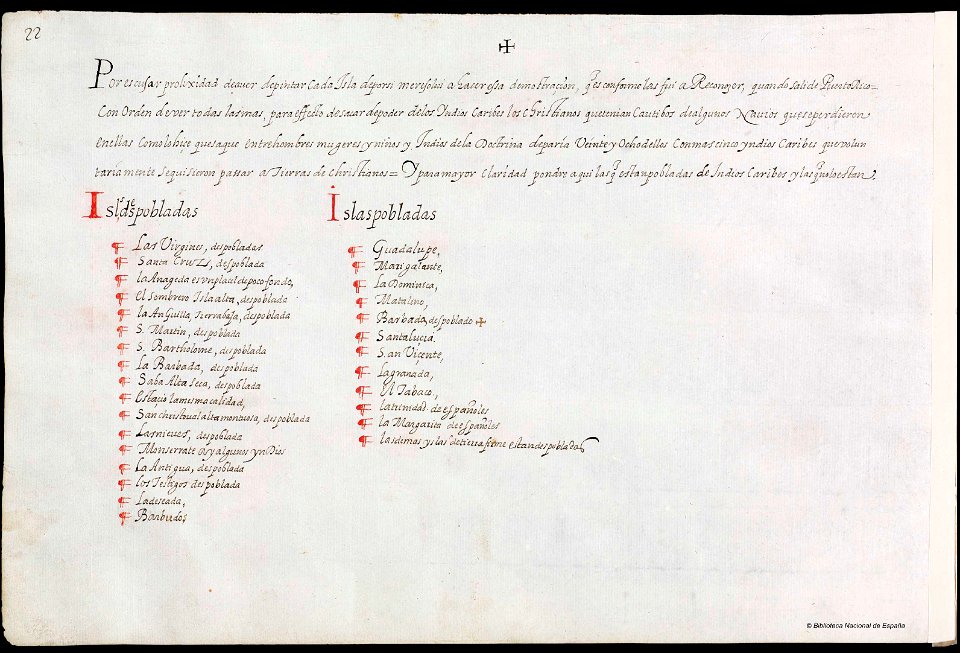 22
Por escusar prolixidad de aver de pintar Cada Isla de por si me resolvi a haser esta demostracion, q̃ es conforme las fui a Reconoçer, quando sali de Puerto Rico=
Con Orden de ver todas las mas, para effeto de sacar de poder de los Indios Caribes los Christianos que tenian Cautibos de algunos Navios que se perdieron
en ellas Como lo hice que saque entre hombres mugeres y ninos y Indios de la Doctrina de paria Veinte y Ocho de llos Con mas cinco yndios Caribes que volun
tariamente se quisieron passar a Tierras de Christianos= Y para mayor Claridad pondre aqui las q̃ estan pobladas de Indios Caribes y las q̃ no lo estan.
Isls despobladas
Las Virgines, despobladas
Santa Cruz, despoblada
la Anageda es vn placel de poco fondo,
el Sombrero Isla alta, despoblada
la Anguilla, tierra baxa, despoblada
S. Martin, despoblada
S. Bartholome, despoblada
La Barbada, despoblada
Saba Alta seca, despoblada
Estacio la misma calidad,
San christoual alta montuosa, despoblada
Las nieves, despoblada
Monserrate ay algunos yndios
La Antigua, despoblada
los Testigos despoblada
La deseada,
Barbudos
Islas pobladas
Guadalupe,
Marigalante,
La Dominica,
Matalino,
Barbada, despoblado
Santa lucia.
San Vicente,
La granada,
El Tabaco,
la trinidad de españoles
la Margarita de españoles
las demas yslas de tierra firme estan despobladas
© Biblioteca Nacional de España